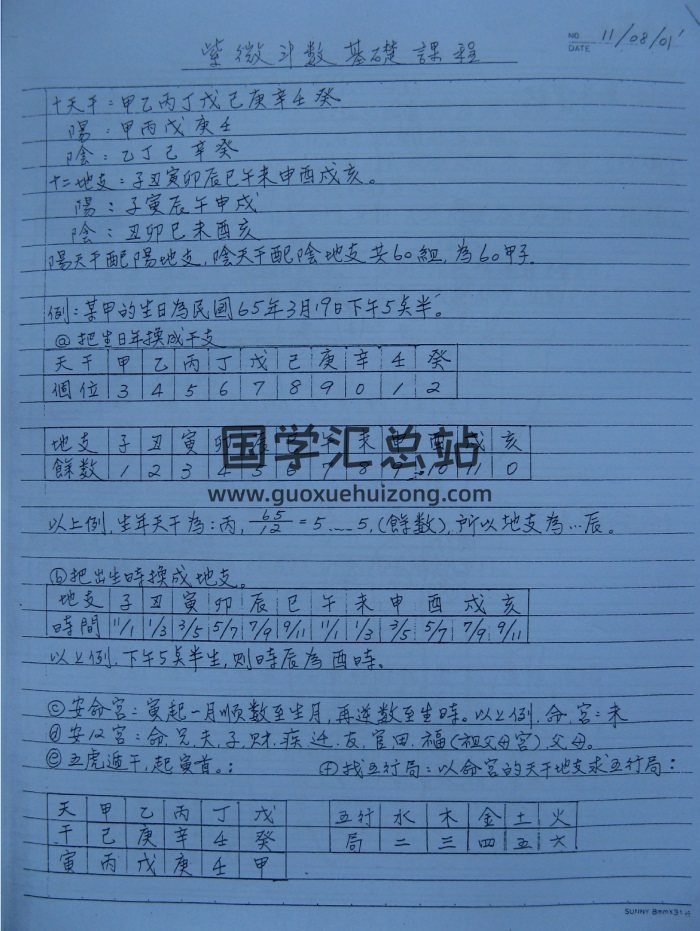 紫微斗数基礎課程
NO
DATE 11/08/01'
十天干：甲乙丙丁戊己庚辛壬癸
陽：甲丙戊庚壬
陰：乙丁己辛癸
十二地支：子丑寅卯辰巳午未申酉戌亥。
陽：子寅辰午申戌
陰：丑卯巳未酉亥
陽天干配陽地支，陰天干配陰地支共60組，為60甲子。
例：某甲的生日為民國65年3月19日下午5点半。
ⓐ把生日年換成干支
天干 甲 乙 丙 丁 戊 己 庚 辛 壬 癸
個位 3 4 5 6 7 8 9 0 1 2
地支 子 丑 寅 卯 辰 巳 午 未 申 酉 戌 亥
餘数 1 2 3 4 5 6 7 8 9 10 11 0
国学汇总站
www.guoxuehuizong.com
以上例，生年天干為：丙，65/12=5……5，(餘数)，所以地支為…辰。
ⓑ把出生時換成地支。
地支 子 丑 寅 卯 辰 巳 午 未 申 酉 戌 亥
時間 11/1 1/3 3/5 5/7 7/9 9/11 11/1 1/3 3/5 5/7 7/9 9/11
以上例，下午5点半生，则時辰為酉時。
ⓒ安命宮：寅起一月順数至生月，再逆数至生時。以上例，命宮：未
ⓓ安12宮：命，兄，夫，子，財，疾，迁，友，官，田，福(祖父母宮)，父母。
ⓔ五虎遁干，起寅首。： ⓕ找五行局：以命宮的天干地支求五行局：
天 甲 乙 丙 丁 戊 五行 水 木 金 土 火
干 己 庚 辛 壬 癸 局 二 三 四 五 六
寅 丙 戊 庚 壬 甲